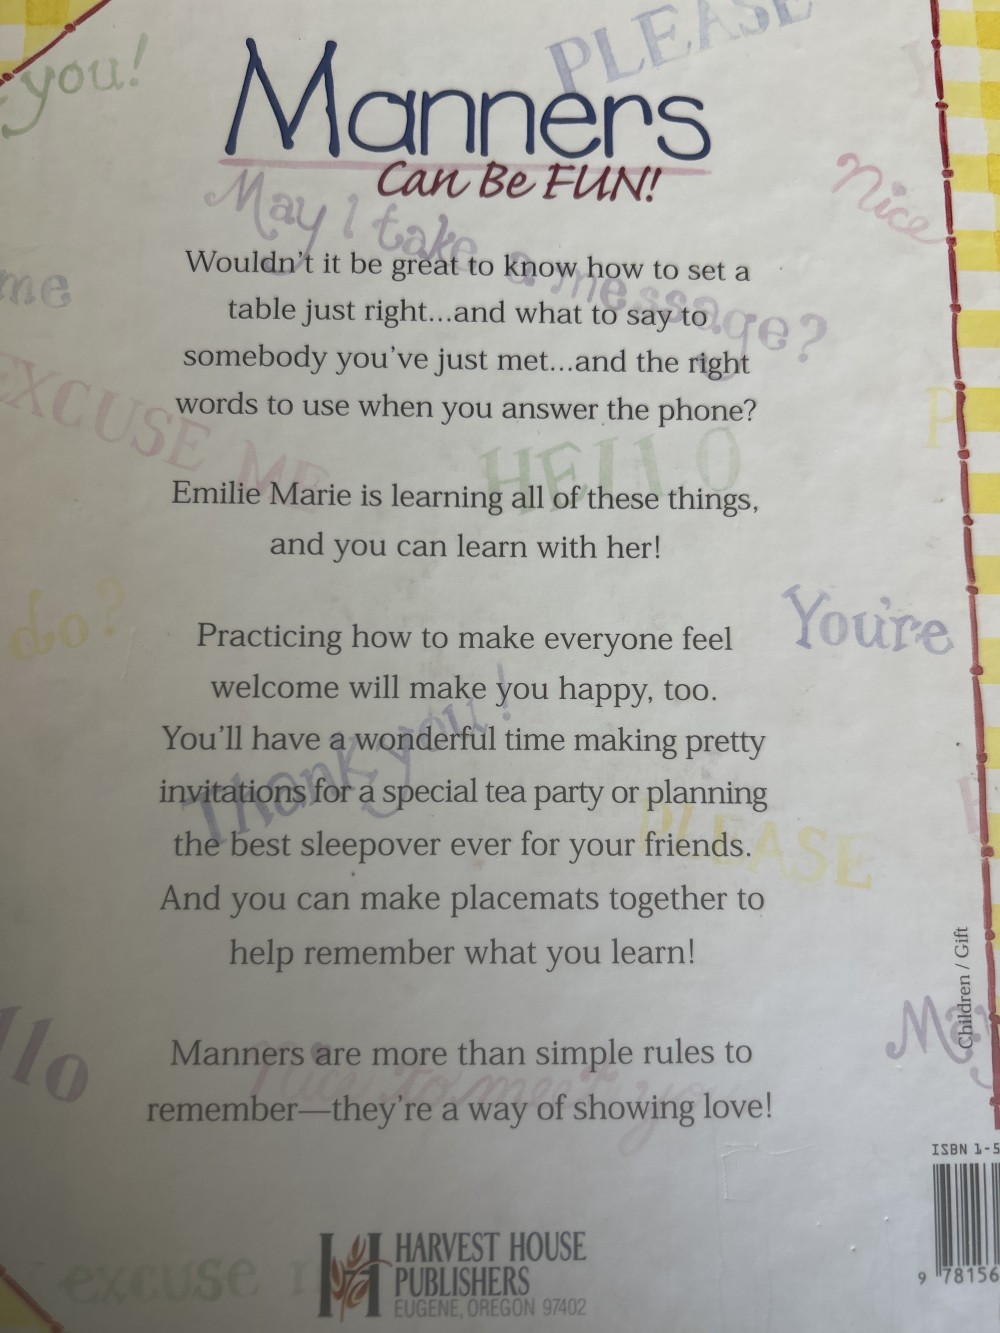 you!
PLEASE
Manners
Can Be FUN!
Nice
May I take a message?
me
Wouldn't it be great to know how to set a
table just right...and what to say to
somebody you've just met...and the right
words to use when you answer the phone?
EXCUSE ME
HELLO
Emilie Marie is learning all of these things,
and you can learn with her!
do?
You're
Practicing how to make everyone feel
welcome will make you happy, too.
You'll have a wonderful time making pretty
invitations for a special tea party or planning
the best sleepover ever for your friends.
And you can make placemats together to
help remember what you learn!
Thank you!
PLEASE
Children / Gift
llo
May
Manners are more than simple rules to
remember—they're a way of showing love!
Nice to meet you
ISBN 1-5
9 78156
excuse
HARVEST HOUSE
PUBLISHERS
EUGENE, OREGON 97402